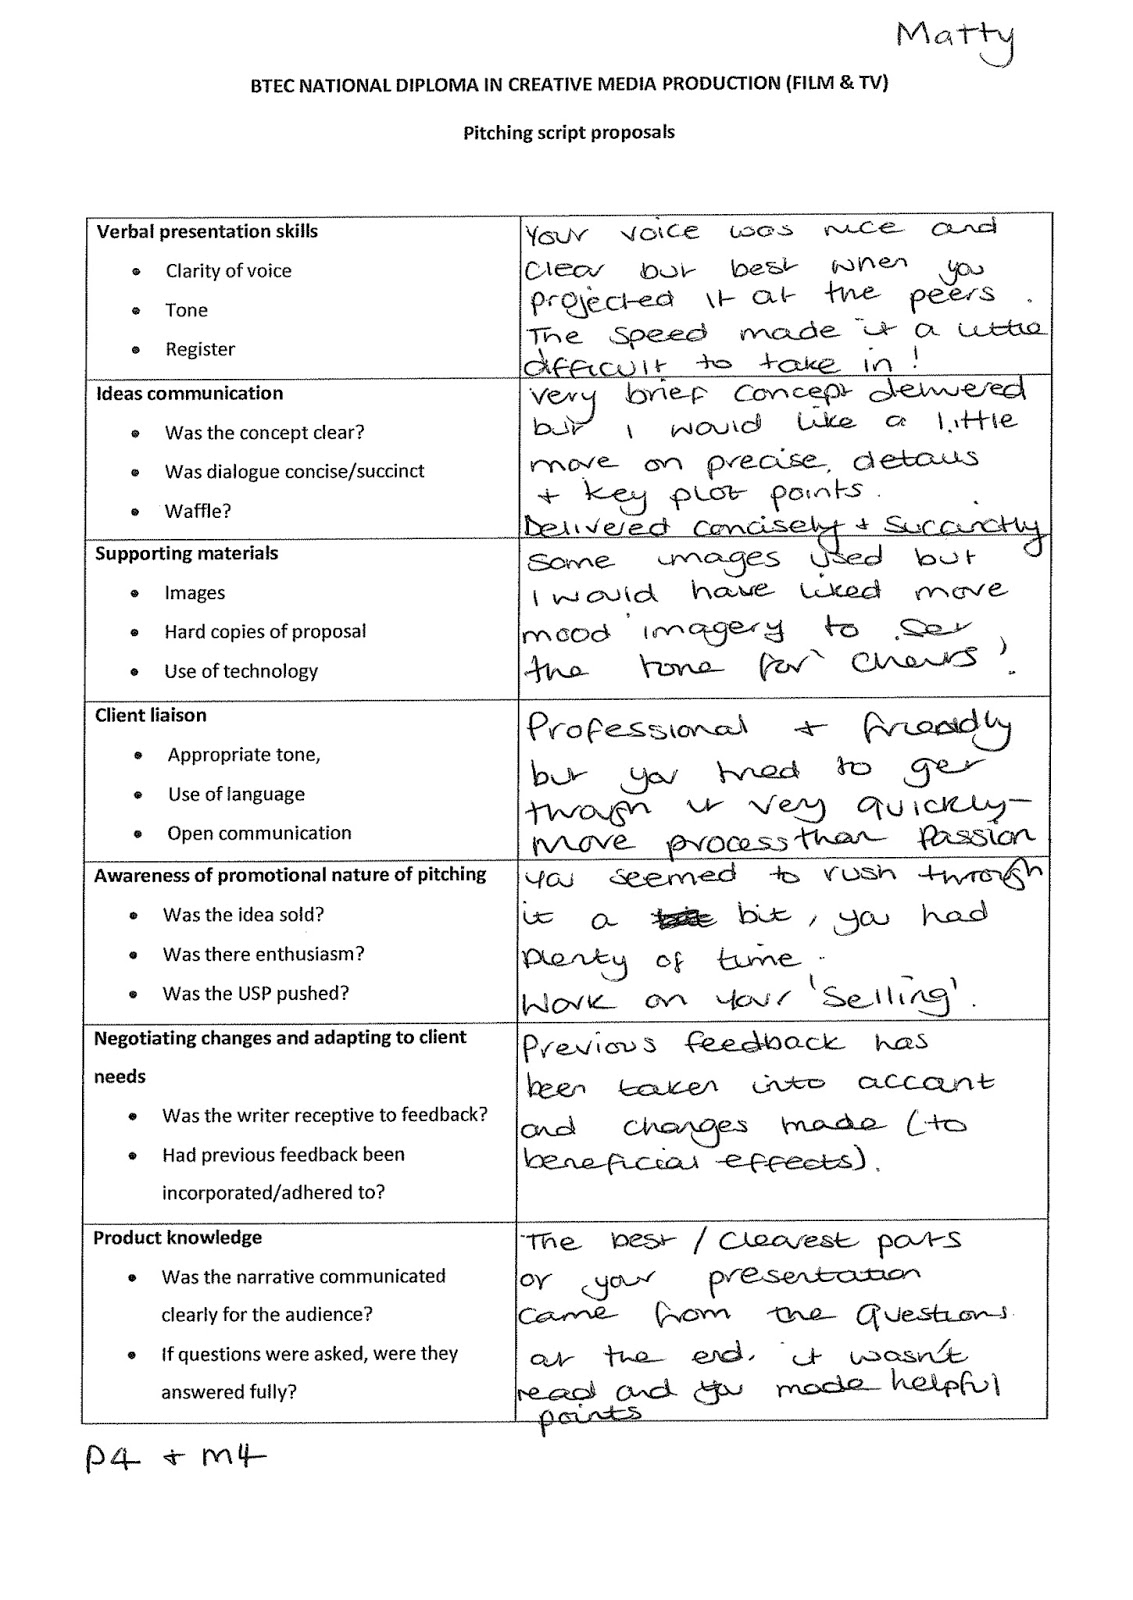 Matty
BTEC NATIONAL DIPLOMA IN CREATIVE MEDIA PRODUCTION (FILM & TV)
Pitching script proposals
Verbal presentation skills
• Clarity of voice
• Tone
• Register
Your voice was nice and
clear but best when you
projected it at the peers.
The speed made it a little
difficult to take in!
Ideas communication
• Was the concept clear?
• Was dialogue concise/succinct
• Waffle?
Very brief concept delivered
but I would like a little
more on precise details
+ key plot points.
Delivered concisely + succinctly
Supporting materials
• Images
• Hard copies of proposal
• Use of technology
Some images used but
I would have liked more
mood imagery to set
the tone for 'Chews'.
Client liaison
• Appropriate tone,
• Use of language
• Open communication
Professional + friendly
but you tried to get
through it very quickly-
more process than passion
Awareness of promotional nature of pitching
• Was the idea sold?
• Was there enthusiasm?
• Was the USP pushed?
You seemed to rush through
it a bit, you had
plenty of time.
Work on your 'selling'.
Negotiating changes and adapting to client
needs
• Was the writer receptive to feedback?
• Had previous feedback been
incorporated/adhered to?
Previous feedback has
been taken into account
and changes made (to
beneficial effects).
Product knowledge
• Was the narrative communicated
clearly for the audience?
• If questions were asked, were they
answered fully?
The best / clearest parts
of your presentation
came from the questions
at the end. it wasn't
read and you made helpful
points
P4 + M4